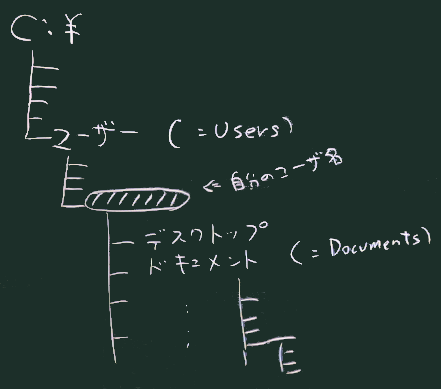 C:¥
ユーザー (=Users)
⇐自分のユーザ名
デスクトップ
ドキュメント (=Documents)